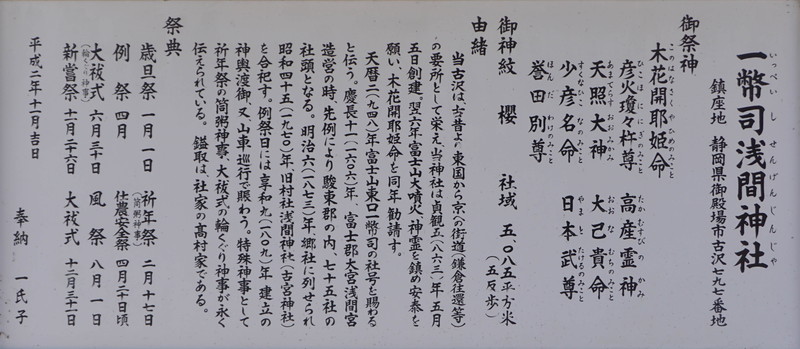 一幣司浅間神社
いっぺいし せんげんじんじゃ
鎮座地 静岡県御殿場市古沢七九七番地
御祭神
木花開耶姫命
このはなさくやひめのみこと
彦火瓊々杵尊 高産霊神
ひこほににぎのみこと たかむすびのかみ
天照大神 大己貴命
あまてらすおおみかみ おおなむちのみこと
少彦名命 日本武尊
すくなひこなのみこと やまとたけるのみこと
誉田別尊
ほんだわけのみこと
御神紋 櫻 社域 五〇八五平方米
(五反歩)
由緒
当古沢は、古昔より東国から京への街道(鎌倉往還等)
の要所として栄え、当神社は貞観五(八六三)年五月
五日創建。翌六年富士山大噴火、神霊を鎮め安泰を
願い、木花開耶姫命を同年勧請す。
天暦二(九四八)年富士山東口一幣司の社号を賜わる
と伝う。慶長十一(一六〇六)年、富士郡大宮浅間宮
造営の時、先例により駿東郡の内、七十五社の
社頭となる。明治六(一八七三)年、郷社に列せられ
昭和四十五(一九七〇)年旧村社浅間神社(古宮神社)
を合祀す。例祭日には享和九(一八〇九)年建立の
神輿渡御、又、山車巡行で賑わう。特殊神事として
祈年祭の筒粥神事、大祓式の輪くぐり神事が永く
伝えられている。鎰取は、社家の高村家である。
祭典
歳旦祭 一月一日 祈年祭 二月十七日
(筒粥神事)
例祭 四月 仕農安全祭 四月二十日頃
大祓式 六月三十日 風祭 八月一日
(輪くぐり神事)
新嘗祭 十一月二十六日 大祓式 十二月三十一日
平成二年十一月吉日
奉納 一氏子